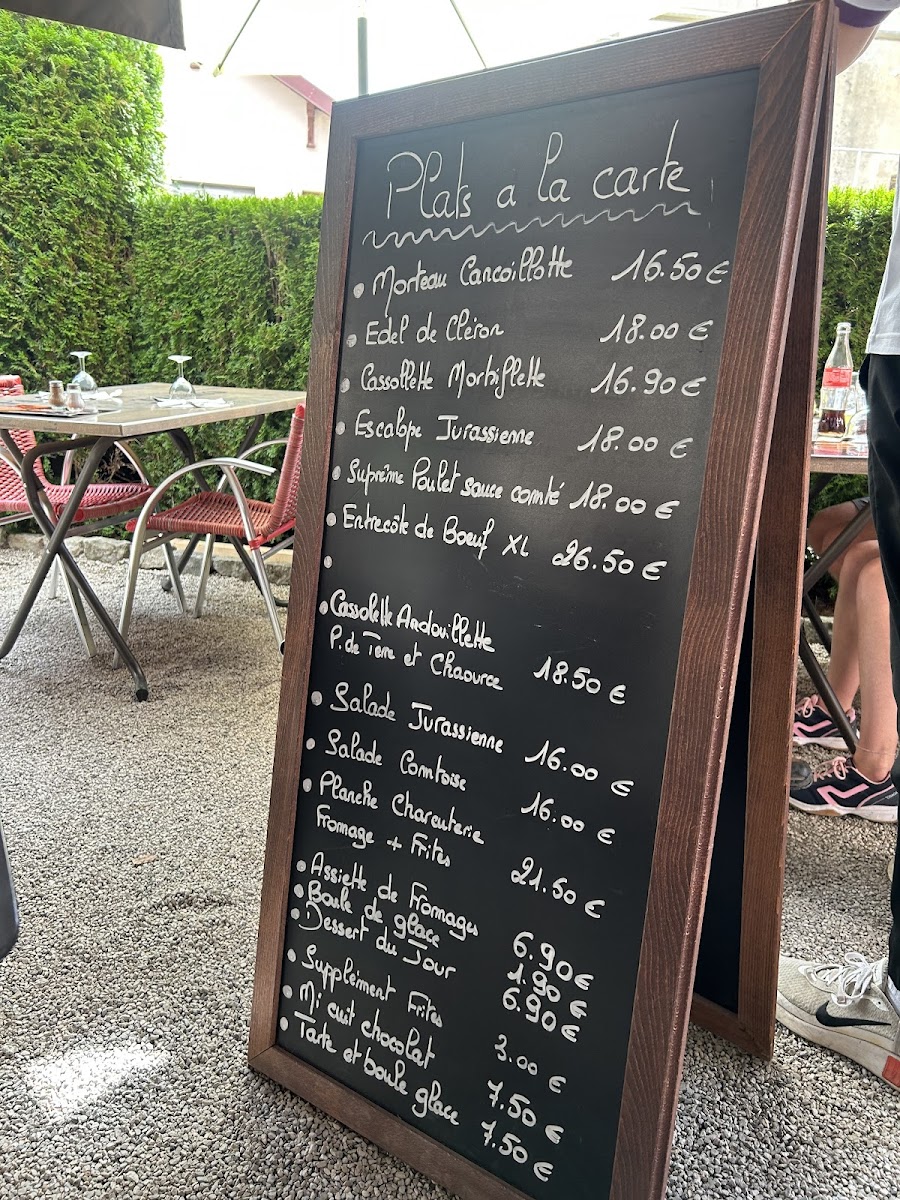 Plats a la carte
• Morteau Cancoillotte 16.50 €
• Edel de Cléron 18.00 €
• Cassollette Morbiflette 16.90 €
• Escalope Jurassienne 18.00 €
• Suprême Poulet sauce comté 18.00 €
• Entrecôte de Boeuf XL 26.50 €
•
• Cassolette Andouillette
P. de Terre et Chaource 18.50 €
• Salade Jurassienne 16.00 €
• Salade Comtoise 16.00 €
• Planche Charcuterie
Fromage + Frites 21.50 €
• Assiette de Fromages 6.90 €
• Boule de glace 1.90 €
• Dessert du Jour 6.90 €
• Supplément Frites 3.00 €
• Mi cuit chocolat 7.50 €
• Tarte et boule glace 7.50 €